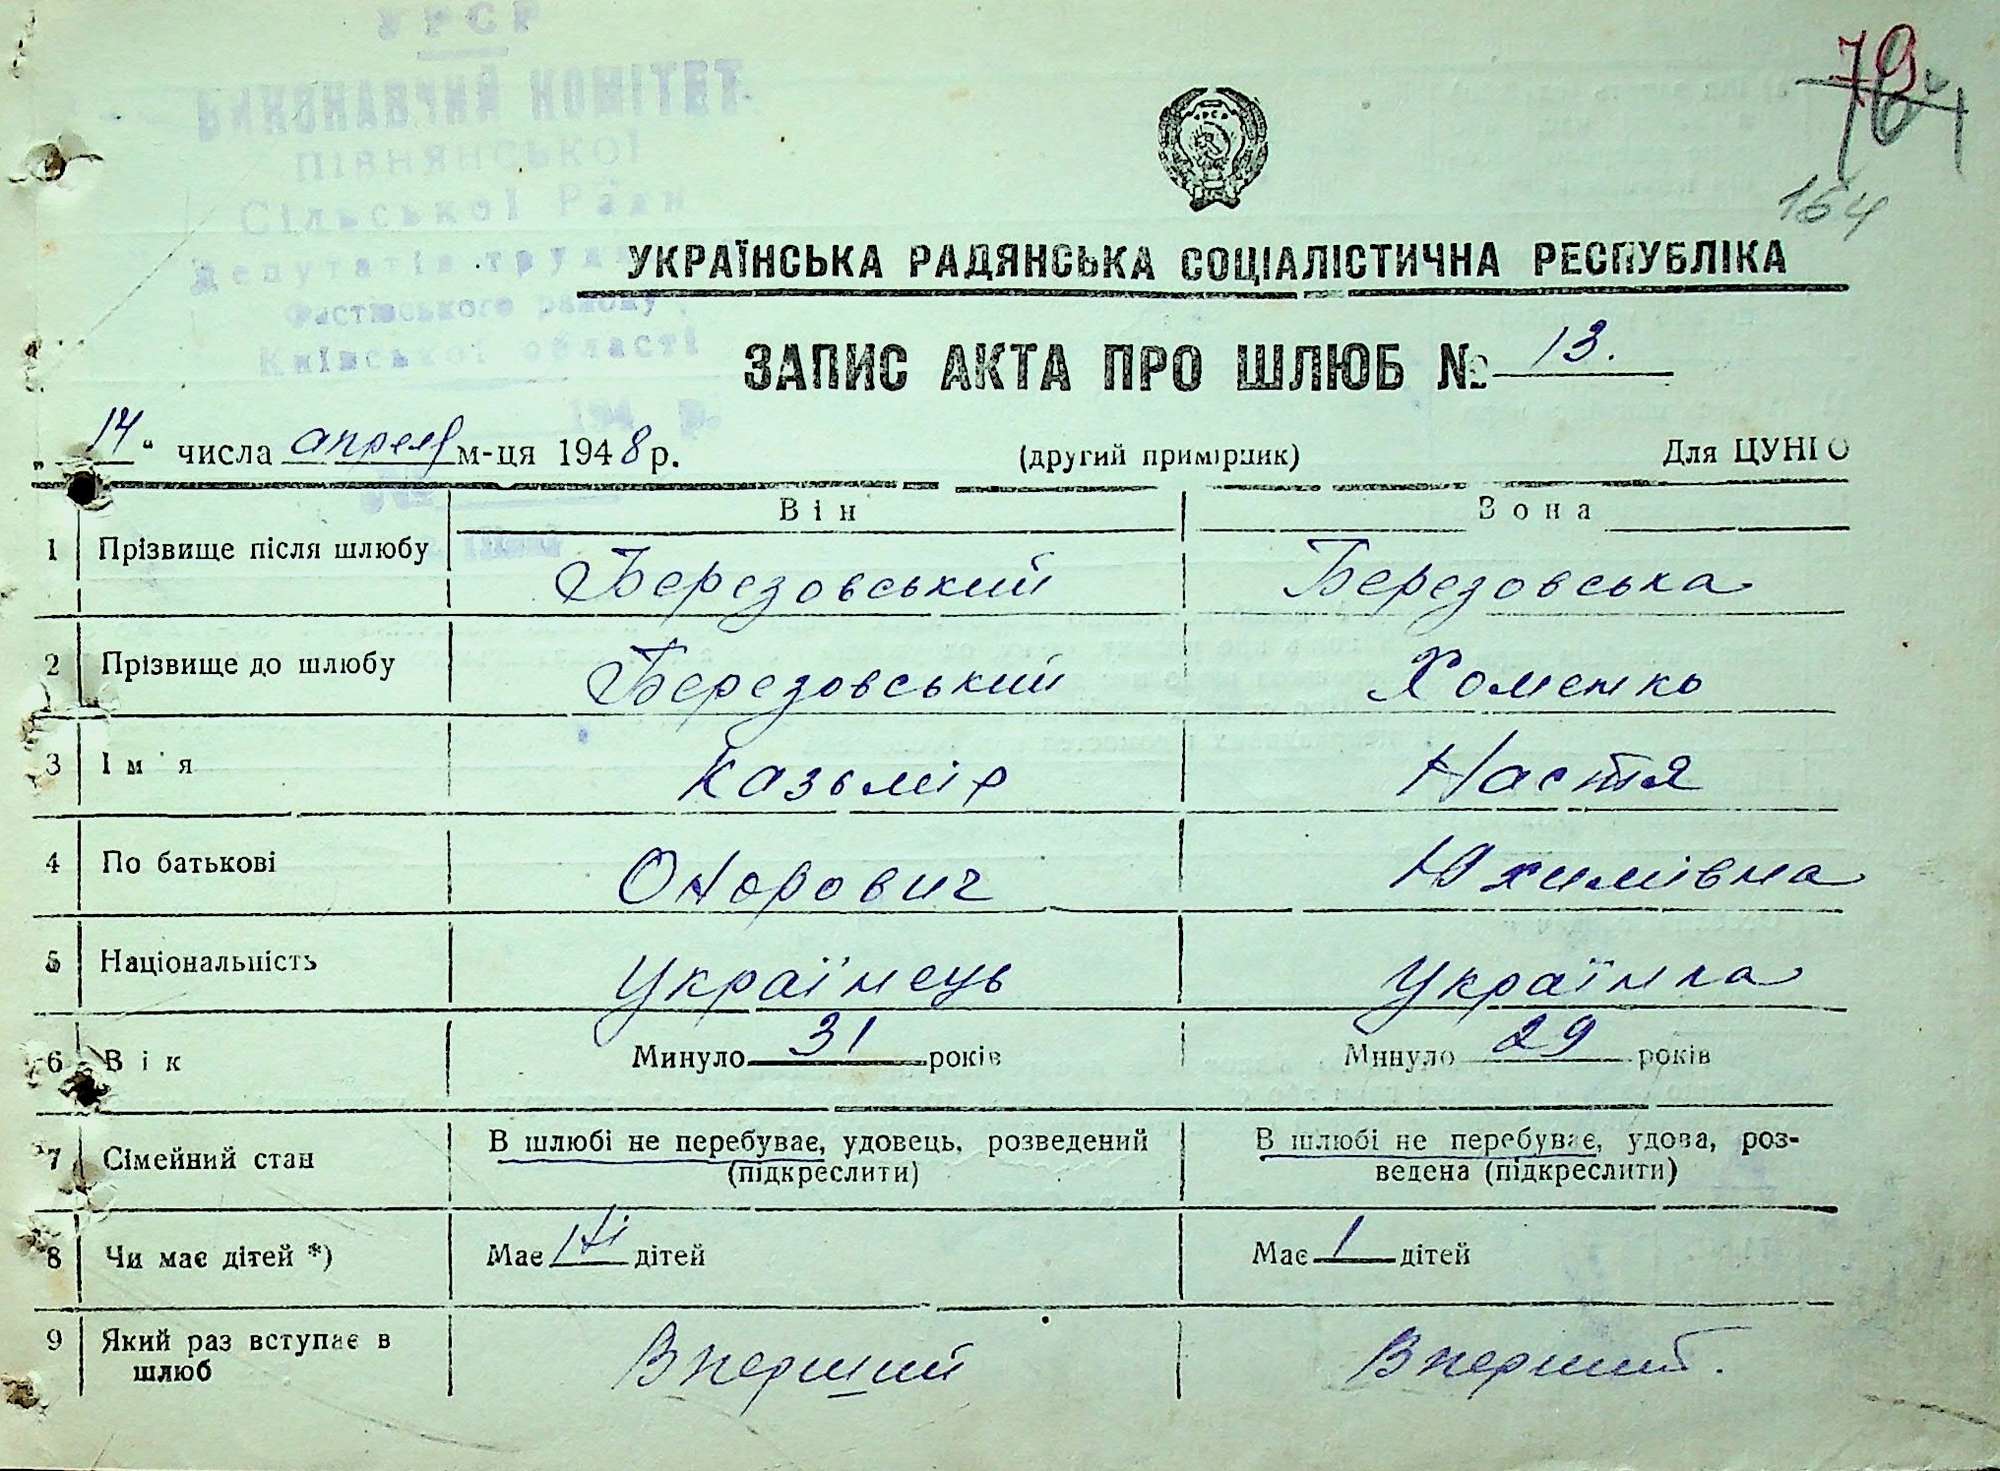 УРСР
ВИКОНАВЧИЙ КОМІТЕТ
ПІВНЯНСЬКОЇ
Сільської Ради
Депутатів труд
Фастівського району
Київської області
194 р.
79
164
164
УКРАЇНСЬКА РАДЯНСЬКА СОЦІАЛІСТИЧНА РЕСПУБЛІКА
ЗАПИС АКТА ПРО ШЛЮБ № 13.
„14“ числа апреля м-ця 1948 р. (другий примірник) Для ЦУНГО
Він Вона
1 Прізвище після шлюбу Березовський Березовська
2 Прізвище до шлюбу Березовський Хоменко
3 Ім'я Казьмір Настя
4 По батькові Онорович Юхимівна
5 Національність Українець Українка
6 Вік Минуло 31 років Минуло 29 років
7 Сімейний стан В шлюбі не перебуває, удовець, розведений В шлюбі не перебуває, удова, роз-
(підкреслити) ведена (підкреслити)
8 Чи має дітей *) Має Ні дітей Має 1 дітей
9 Який раз вступає в Вперший Вперший.
шлюб